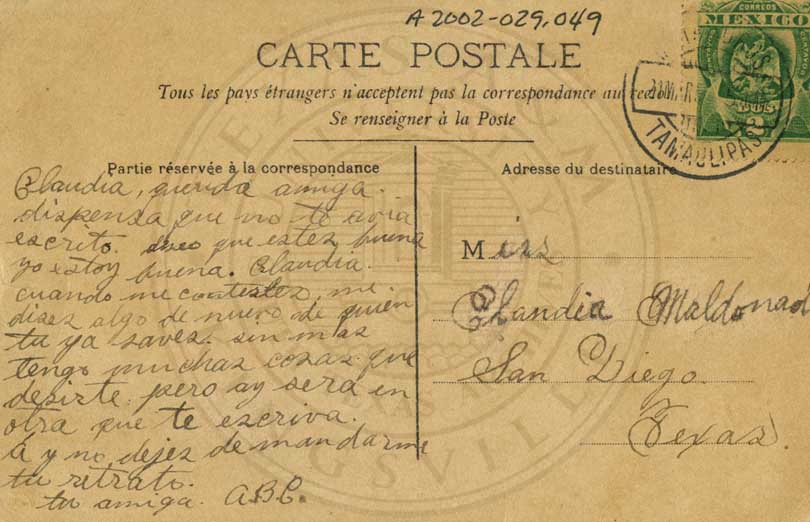 A2002-029.049
CORREOS
MEXICO
CARTE POSTALE
Tous les pays étrangers n'acceptent pas la correspondance au recto
Se renseigner à la Poste
21 MAR
TAMAULIPAS
Partie réservée à la correspondance
Claudia, querida amiga.
dispensa que no te avia
escrito. deseo que estes buena
yo estoy buena. Claudia.
cuando me contestes, me
dises algo de nuevo de quien
tu ya saves. sin mas
tengo muchas cosas que
desirte pero ay sera en
otra que te escriva.
A y no dejes de mandarme
tu retrato.
tu amiga. A.B.C.
Adresse du destinataire
Miss
Claudia Maldonad
San Diego.
Texas.